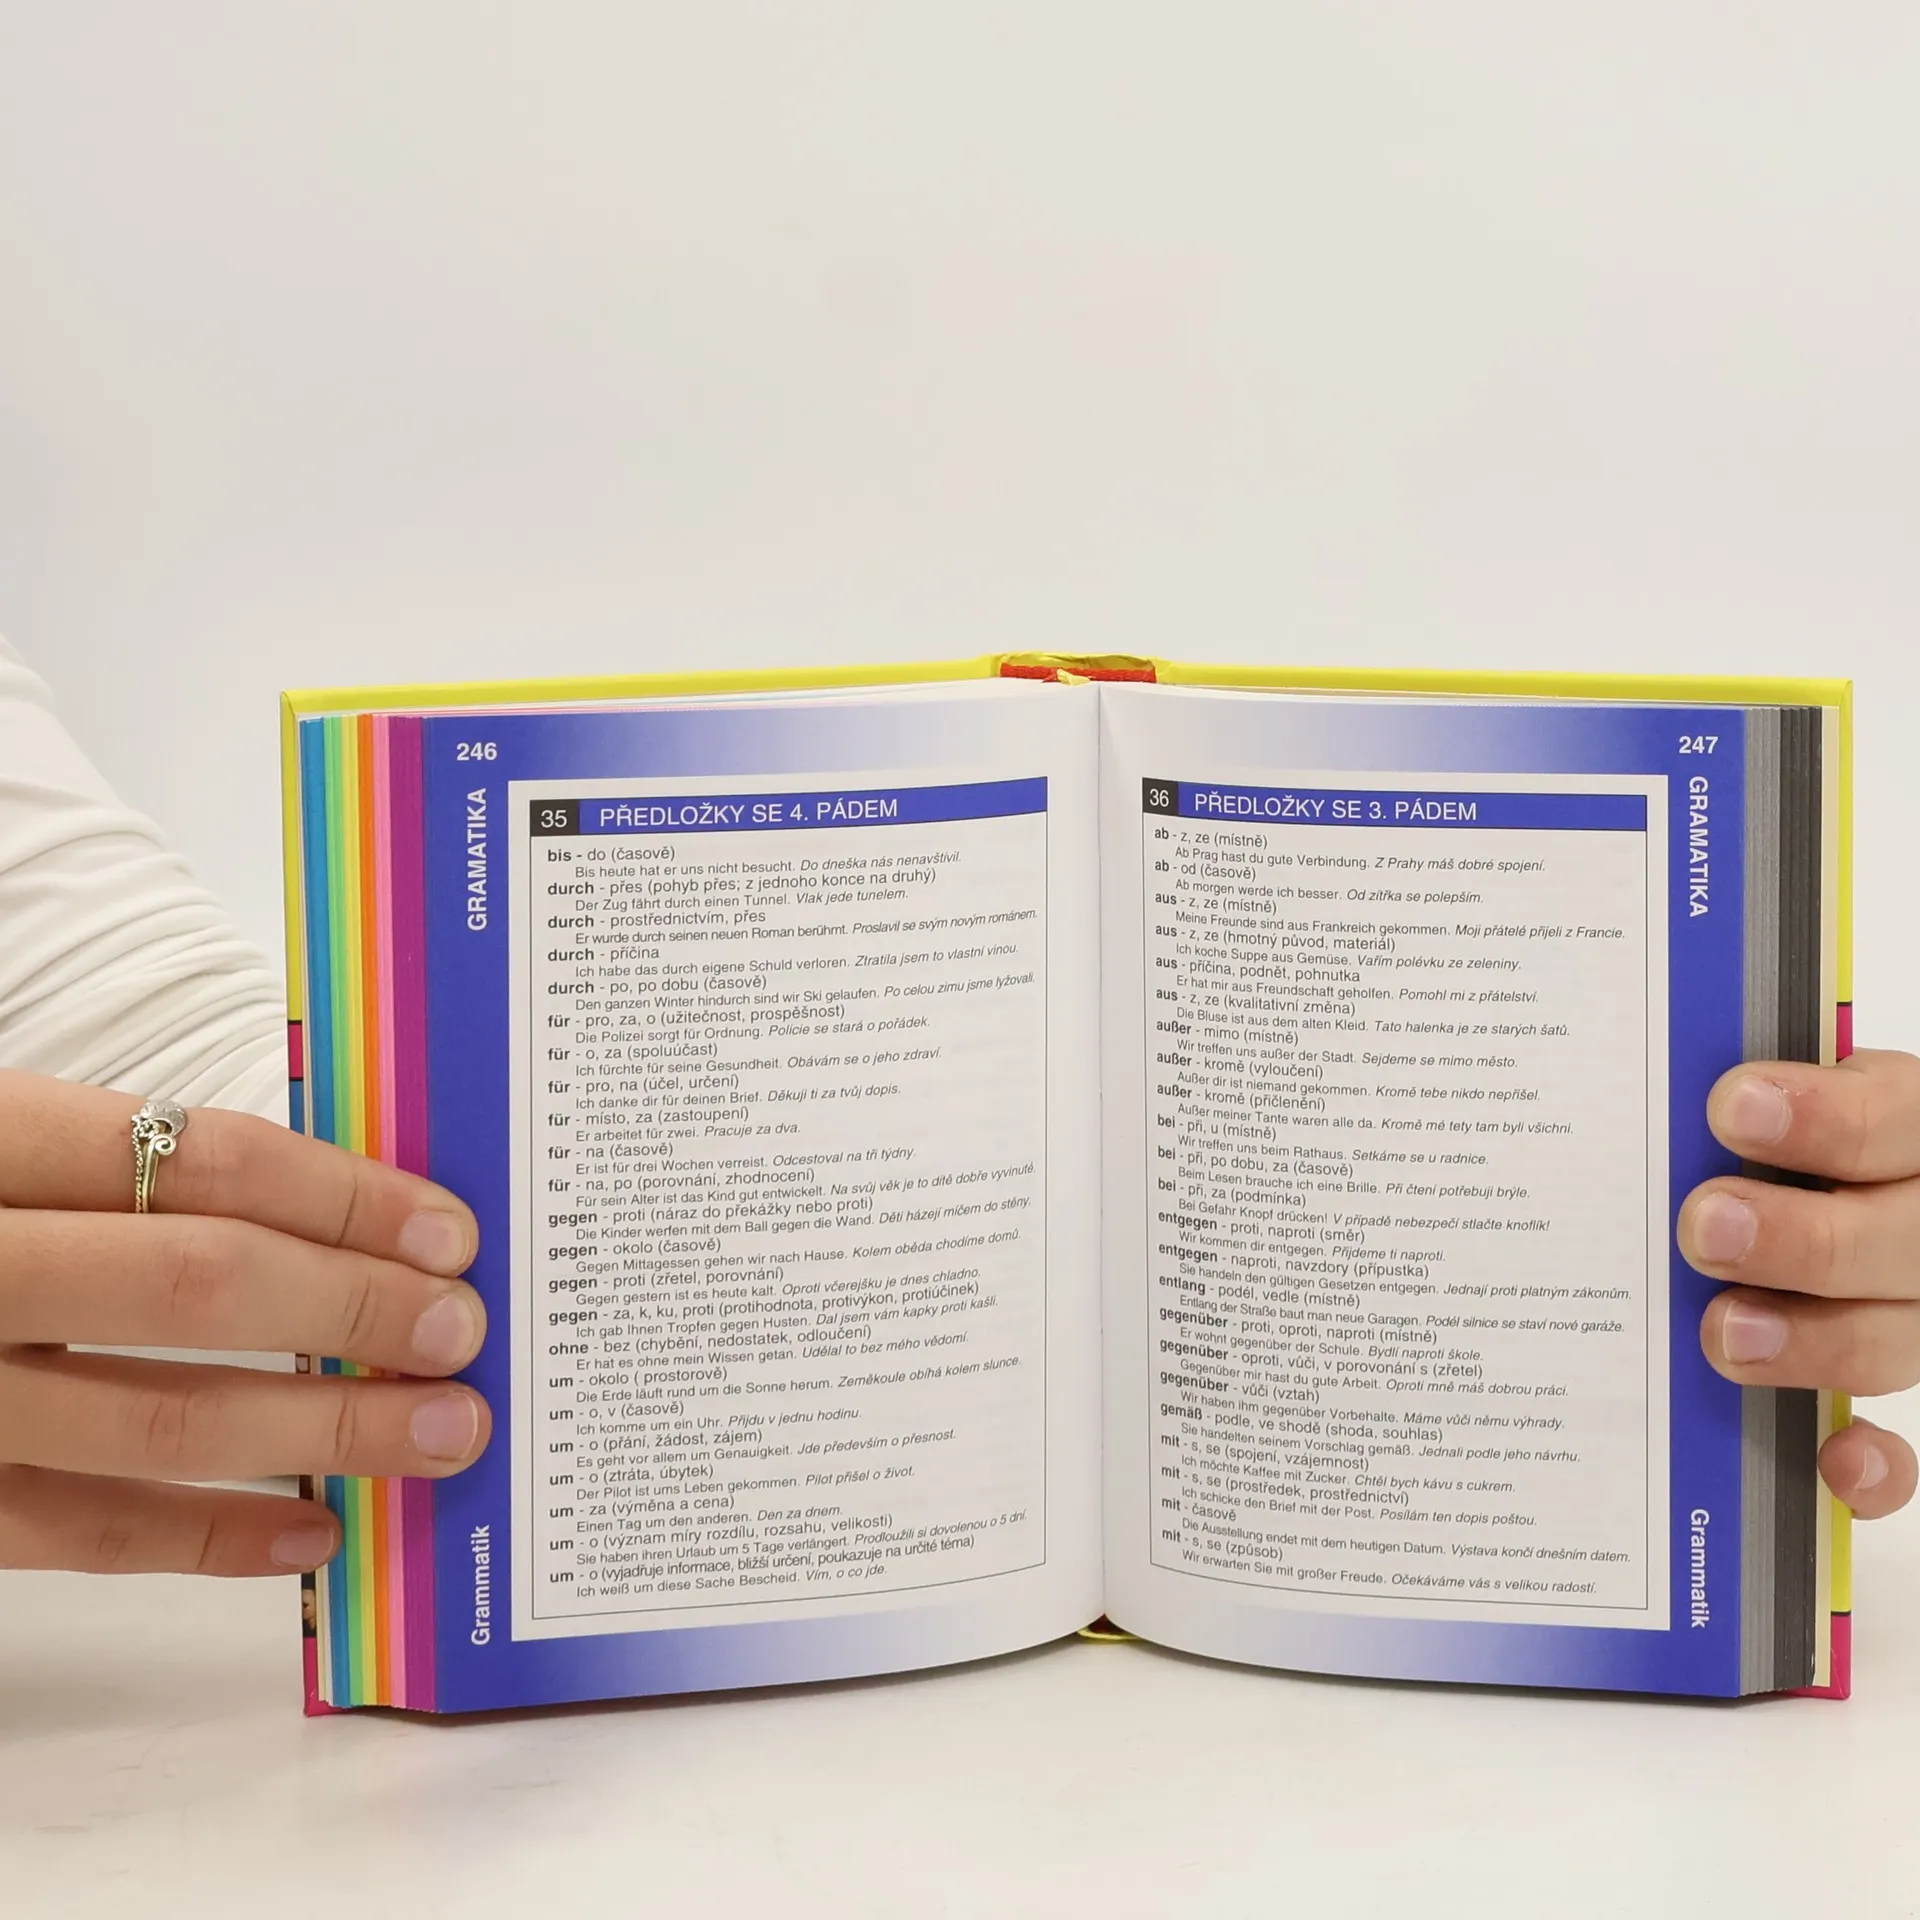 246
GRAMATIKA
35 PŘEDLOŽKY SE 4. PÁDEM
bis - do (časově)
Bis heute hat er uns nicht besucht. Do dneška nás nenavštívil.
durch - přes (pohyb přes; z jednoho konce na druhý)
Der Zug fährt durch einen Tunnel. Vlak jede tunelem.
durch - prostřednictvím, přes
Er wurde durch seinen neuen Roman berühmt. Proslavil se svým novým románem.
durch - příčina
Ich habe das durch eigene Schuld verloren. Ztratila jsem to vlastní vinou.
durch - po, po dobu (časově)
Den ganzen Winter hindurch sind wir Ski gelaufen. Po celou zimu jsme lyžovali.
für - pro, za, o (užitečnost, prospěšnost)
Die Polizei sorgt für Ordnung. Policie se stará o pořádek.
für - o, za (spoluúčast)
Ich fürchte für seine Gesundheit. Obávám se o jeho zdraví.
für - pro, na (účel, určení)
Ich danke dir für deinen Brief. Děkuji ti za tvůj dopis.
für - místo, za (zastoupení)
Er arbeitet für zwei. Pracuje za dva.
für - na (časově)
Er ist für drei Wochen verreist. Odcestoval na tři týdny.
für - na, po (porovnání, zhodnocení)
Für sein Alter ist das Kind gut entwickelt. Na svůj věk je to dítě dobře vyvinuté.
gegen - proti (náraz do překážky nebo proti)
Die Kinder werfen mit dem Ball gegen die Wand. Děti házejí míčem do stěny.
gegen - okolo (časově)
Gegen Mittagessen gehen wir nach Hause. Kolem oběda chodíme domů.
gegen - proti (zřetel, porovnání)
Gegen gestern ist es heute kalt. Oproti včerejšku je dnes chladno.
gegen - za, k, ku, proti (protihodnota, protivýkon, protiúčinek)
Ich gab Ihnen Tropfen gegen Husten. Dal jsem vám kapky proti kašli.
ohne - bez (chybění, nedostatek, odloučení)
Er hat es ohne mein Wissen getan. Udělal to bez mého vědomí.
um - okolo ( prostorově)
Die Erde läuft rund um die Sonne herum. Zeměkoule obíhá kolem slunce.
um - o, v (časově)
Ich komme um ein Uhr. Přijdu v jednu hodinu.
um - o (přání, žádost, zájem)
Es geht vor allem um Genauigkeit. Jde především o přesnost.
um - o (ztráta, úbytek)
Der Pilot ist ums Leben gekommen. Pilot přišel o život.
um - za (výměna a cena)
Einen Tag um den anderen. Den za dnem.
um - o (význam míry rozdílu, rozsahu, velikosti)
Sie haben ihren Urlaub um 5 Tage verlängert. Prodloužili si dovolenou o 5 dní.
um - o (vyjadřuje informace, bližší určení, poukazuje na určité téma)
Ich weiß um diese Sache Bescheid. Vím, o co jde.
Grammatik
247
GRAMATIKA
36 PŘEDLOŽKY SE 3. PÁDEM
ab - z, ze (místně)
Ab Prag hast du gute Verbindung. Z Prahy máš dobré spojení.
ab - od (časově)
Ab morgen werde ich besser. Od zítřka se polepším.
aus - z, ze (místně)
Meine Freunde sind aus Frankreich gekommen. Moji přátelé přijeli z Francie.
aus - z, ze (hmotný původ, materiál)
Ich koche Suppe aus Gemüse. Vařím polévku ze zeleniny.
aus - příčina, podnět, pohnutka
Er hat mir aus Freundschaft geholfen. Pomohl mi z přátelství.
aus - z, ze (kvalitativní změna)
Die Bluse ist aus dem alten Kleid. Tato halenka je ze starých šatů.
außer - mimo (místně)
Wir treffen uns außer der Stadt. Sejdeme se mimo město.
außer - kromě (vyloučení)
Außer dir ist niemand gekommen. Kromě tebe nikdo nepřišel.
außer - kromě (přičlenění)
Außer meiner Tante waren alle da. Kromě mé tety tam byli všichni.
bei - při, u (místně)
Wir treffen uns beim Rathaus. Setkáme se u radnice.
bei - při, po dobu, za (časově)
Beim Lesen brauche ich eine Brille. Při čtení potřebuji brýle.
bei - při, za (podmínka)
Bei Gefahr Knopf drücken! V případě nebezpečí stlačte knoflík!
entgegen - proti, naproti (směr)
Wir kommen dir entgegen. Přijdeme ti naproti.
entgegen - naproti, navzdory (přípustka)
Sie handeln den gültigen Gesetzen entgegen. Jednají proti platným zákonům.
entlang - podél, vedle (místně)
Entlang der Straße baut man neue Garagen. Podél silnice se staví nové garáže.
gegenüber - proti, oproti, naproti (místně)
Er wohnt gegenüber der Schule. Bydlí naproti škole.
gegenüber - oproti, vůči, v porovnání s (zřetel)
Gegenüber mir hast du gute Arbeit. Oproti mně máš dobrou práci.
gegenüber - vůči (vztah)
Wir haben ihm gegenüber Vorbehalte. Máme vůči němu výhrady.
gemäß - podle, ve shodě (shoda, souhlas)
Sie handelten seinem Vorschlag gemäß. Jednali podle jeho návrhu.
mit - s, se (spojení, vzájemnost)
Ich möchte Kaffee mit Zucker. Chtěl bych kávu s cukrem.
mit - s, se (prostředek, prostřednictví)
Ich schicke den Brief mit der Post. Posílám ten dopis poštou.
mit - časově
Die Ausstellung endet mit dem heutigen Datum. Výstava končí dnešním datem.
mit - s, se (způsob)
Wir erwarten Sie mit großer Freude. Očekáváme vás s velikou radostí.
Grammatik